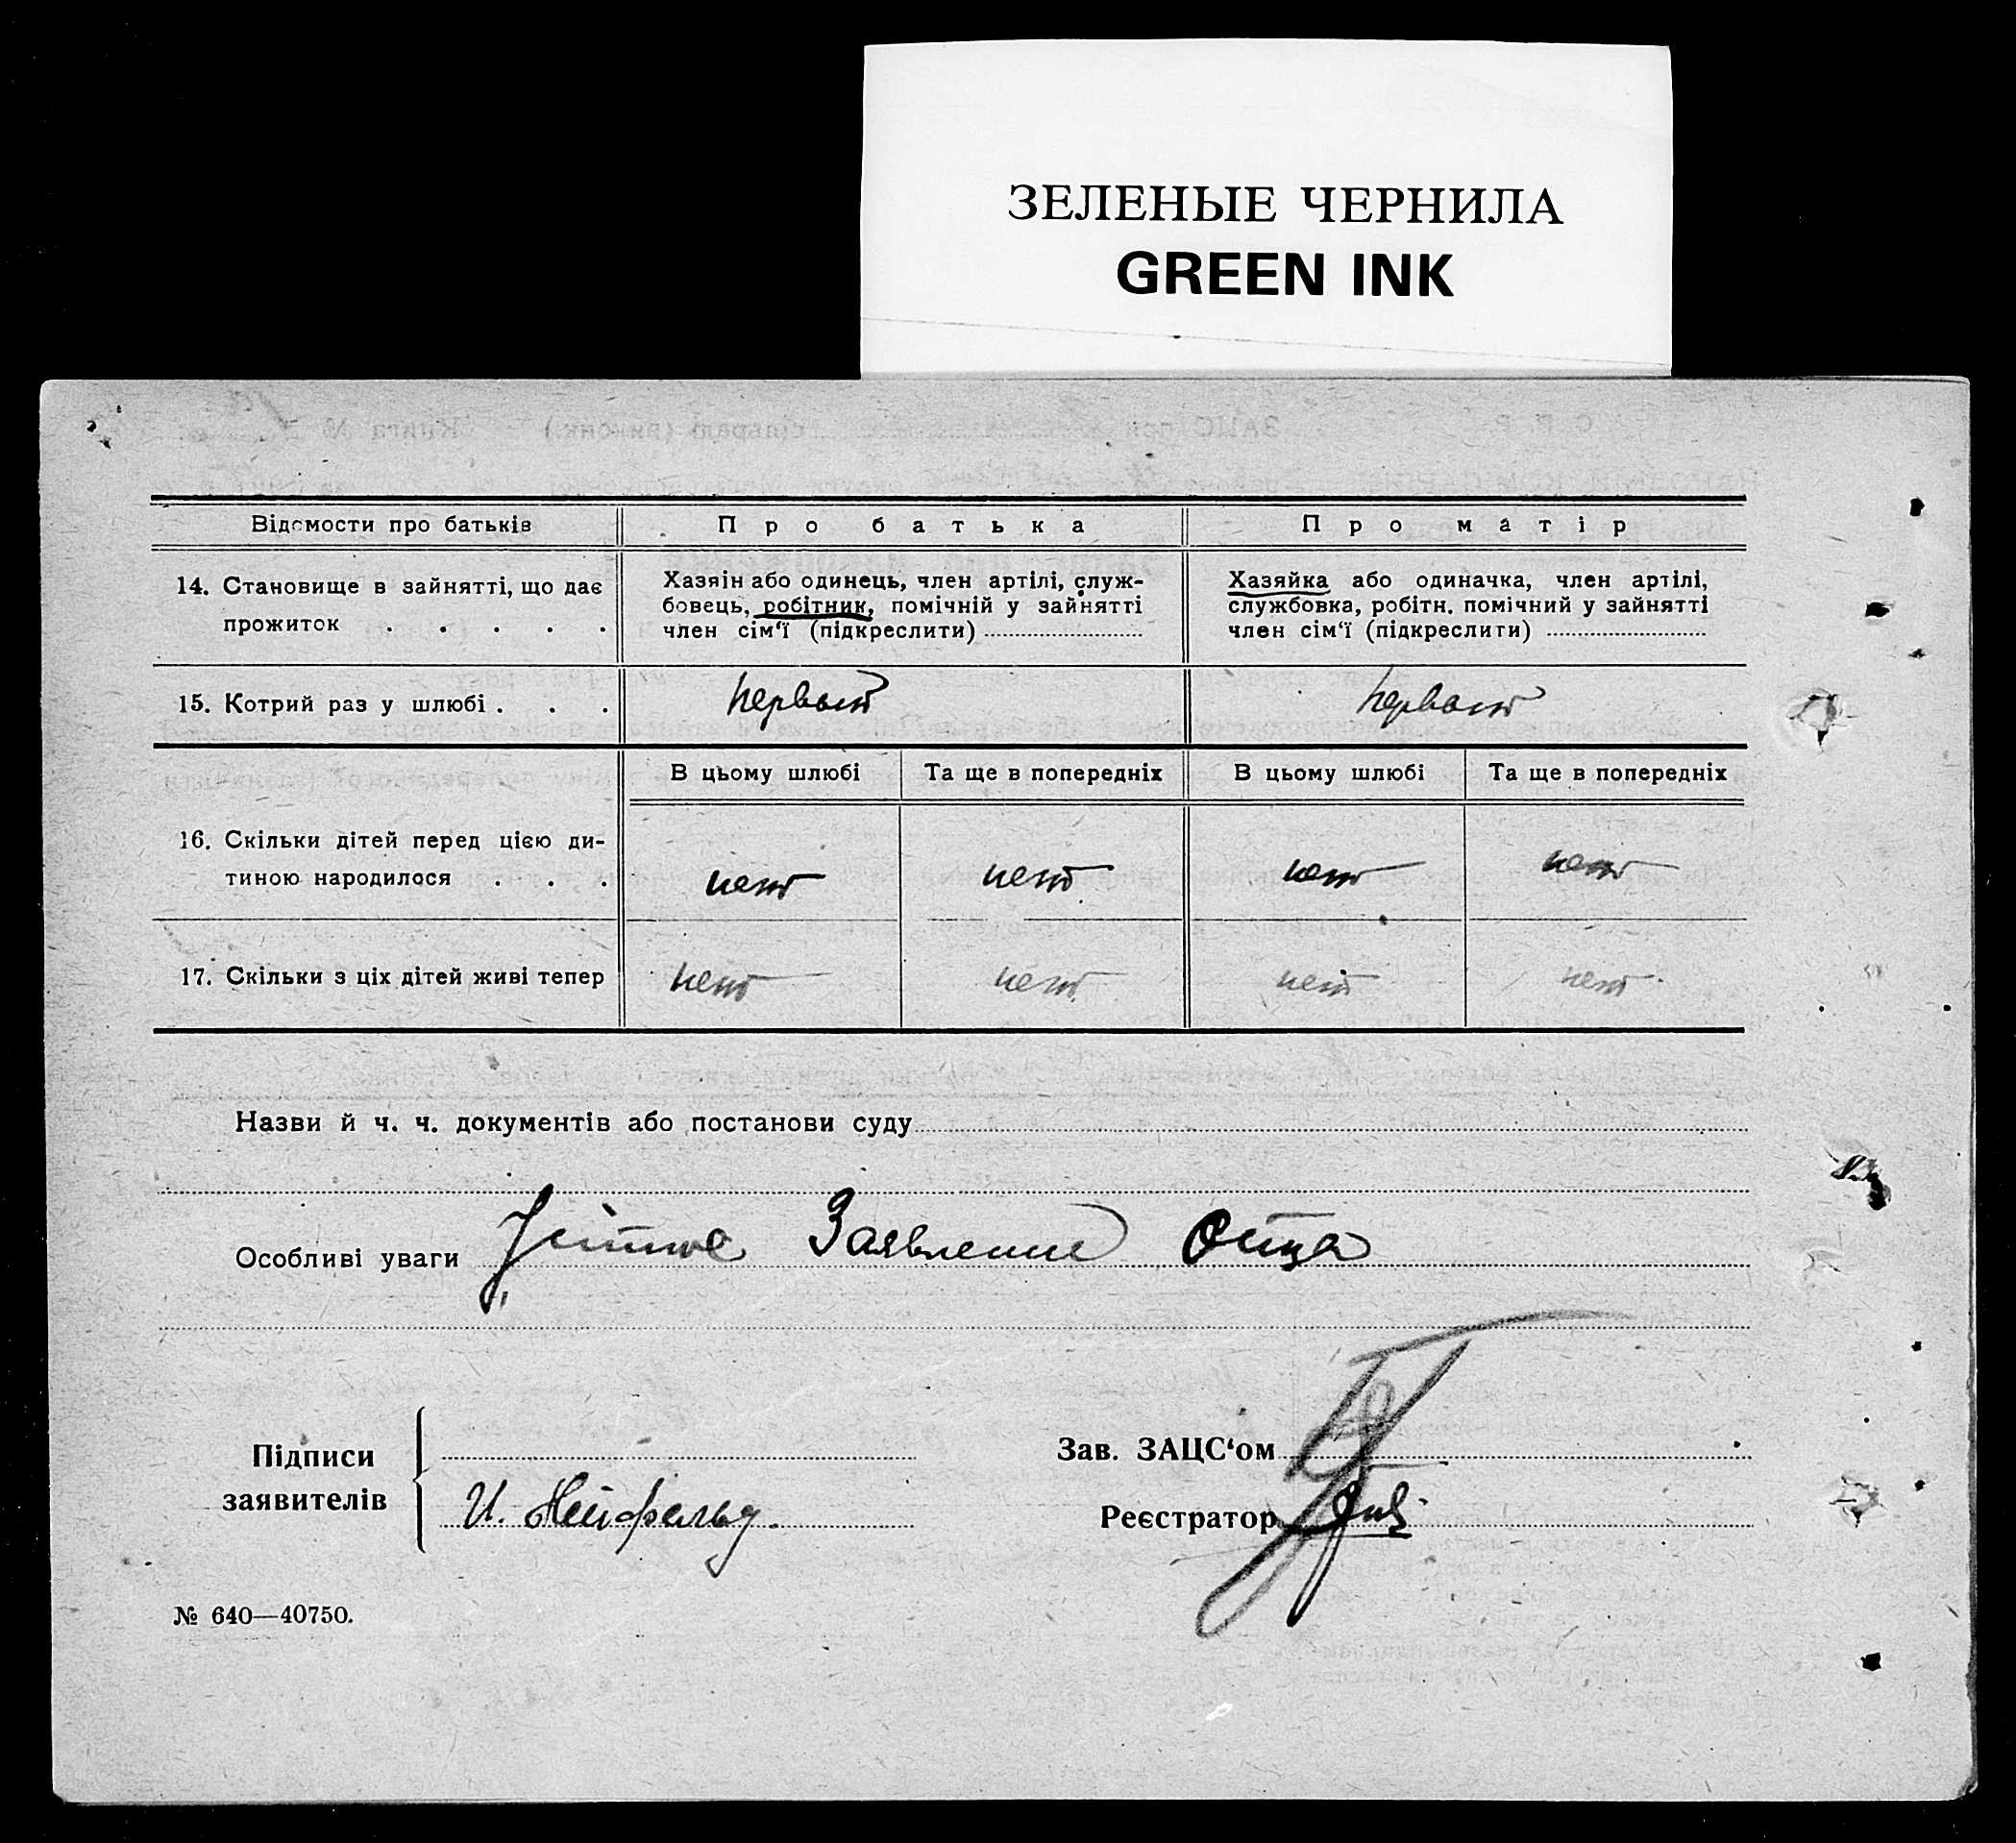 ЗЕЛЕНЫЕ ЧЕРНИЛА
GREEN INK
Відомости про батьків
Про батька
Про матір
14. Становище в зайнятті, що дає
прожиток . . . . .
Хазяін або одинець, член артілі, служ-
бовець, робітник, помічній у зайнятті
член сім‘ї (підкреслити)
Хазяйка або одиначка, член артілі,
службовка, робітн. помічний у зайнятті
член сім‘ї (підкреслити)
15. Котрий раз у шлюбі . . .
первый
первый
В цьому шлюбі
Та ще в попередніх
В цьому шлюбі
Та ще в попередніх
16. Скільки дітей перед цією ди-
тиною народилося . . .
нет
нет
нет
нет
17. Скільки з ціх дітей живі тепер
нет
нет
нет
нет
Назви й ч. ч. документів або постанови суду
Особливі уваги Устное Заявление Отца
Підписи
заявителів
И. Нейфельд.
Зав. ЗАЦС‘ом
Реєстратор
№ 640—40750.